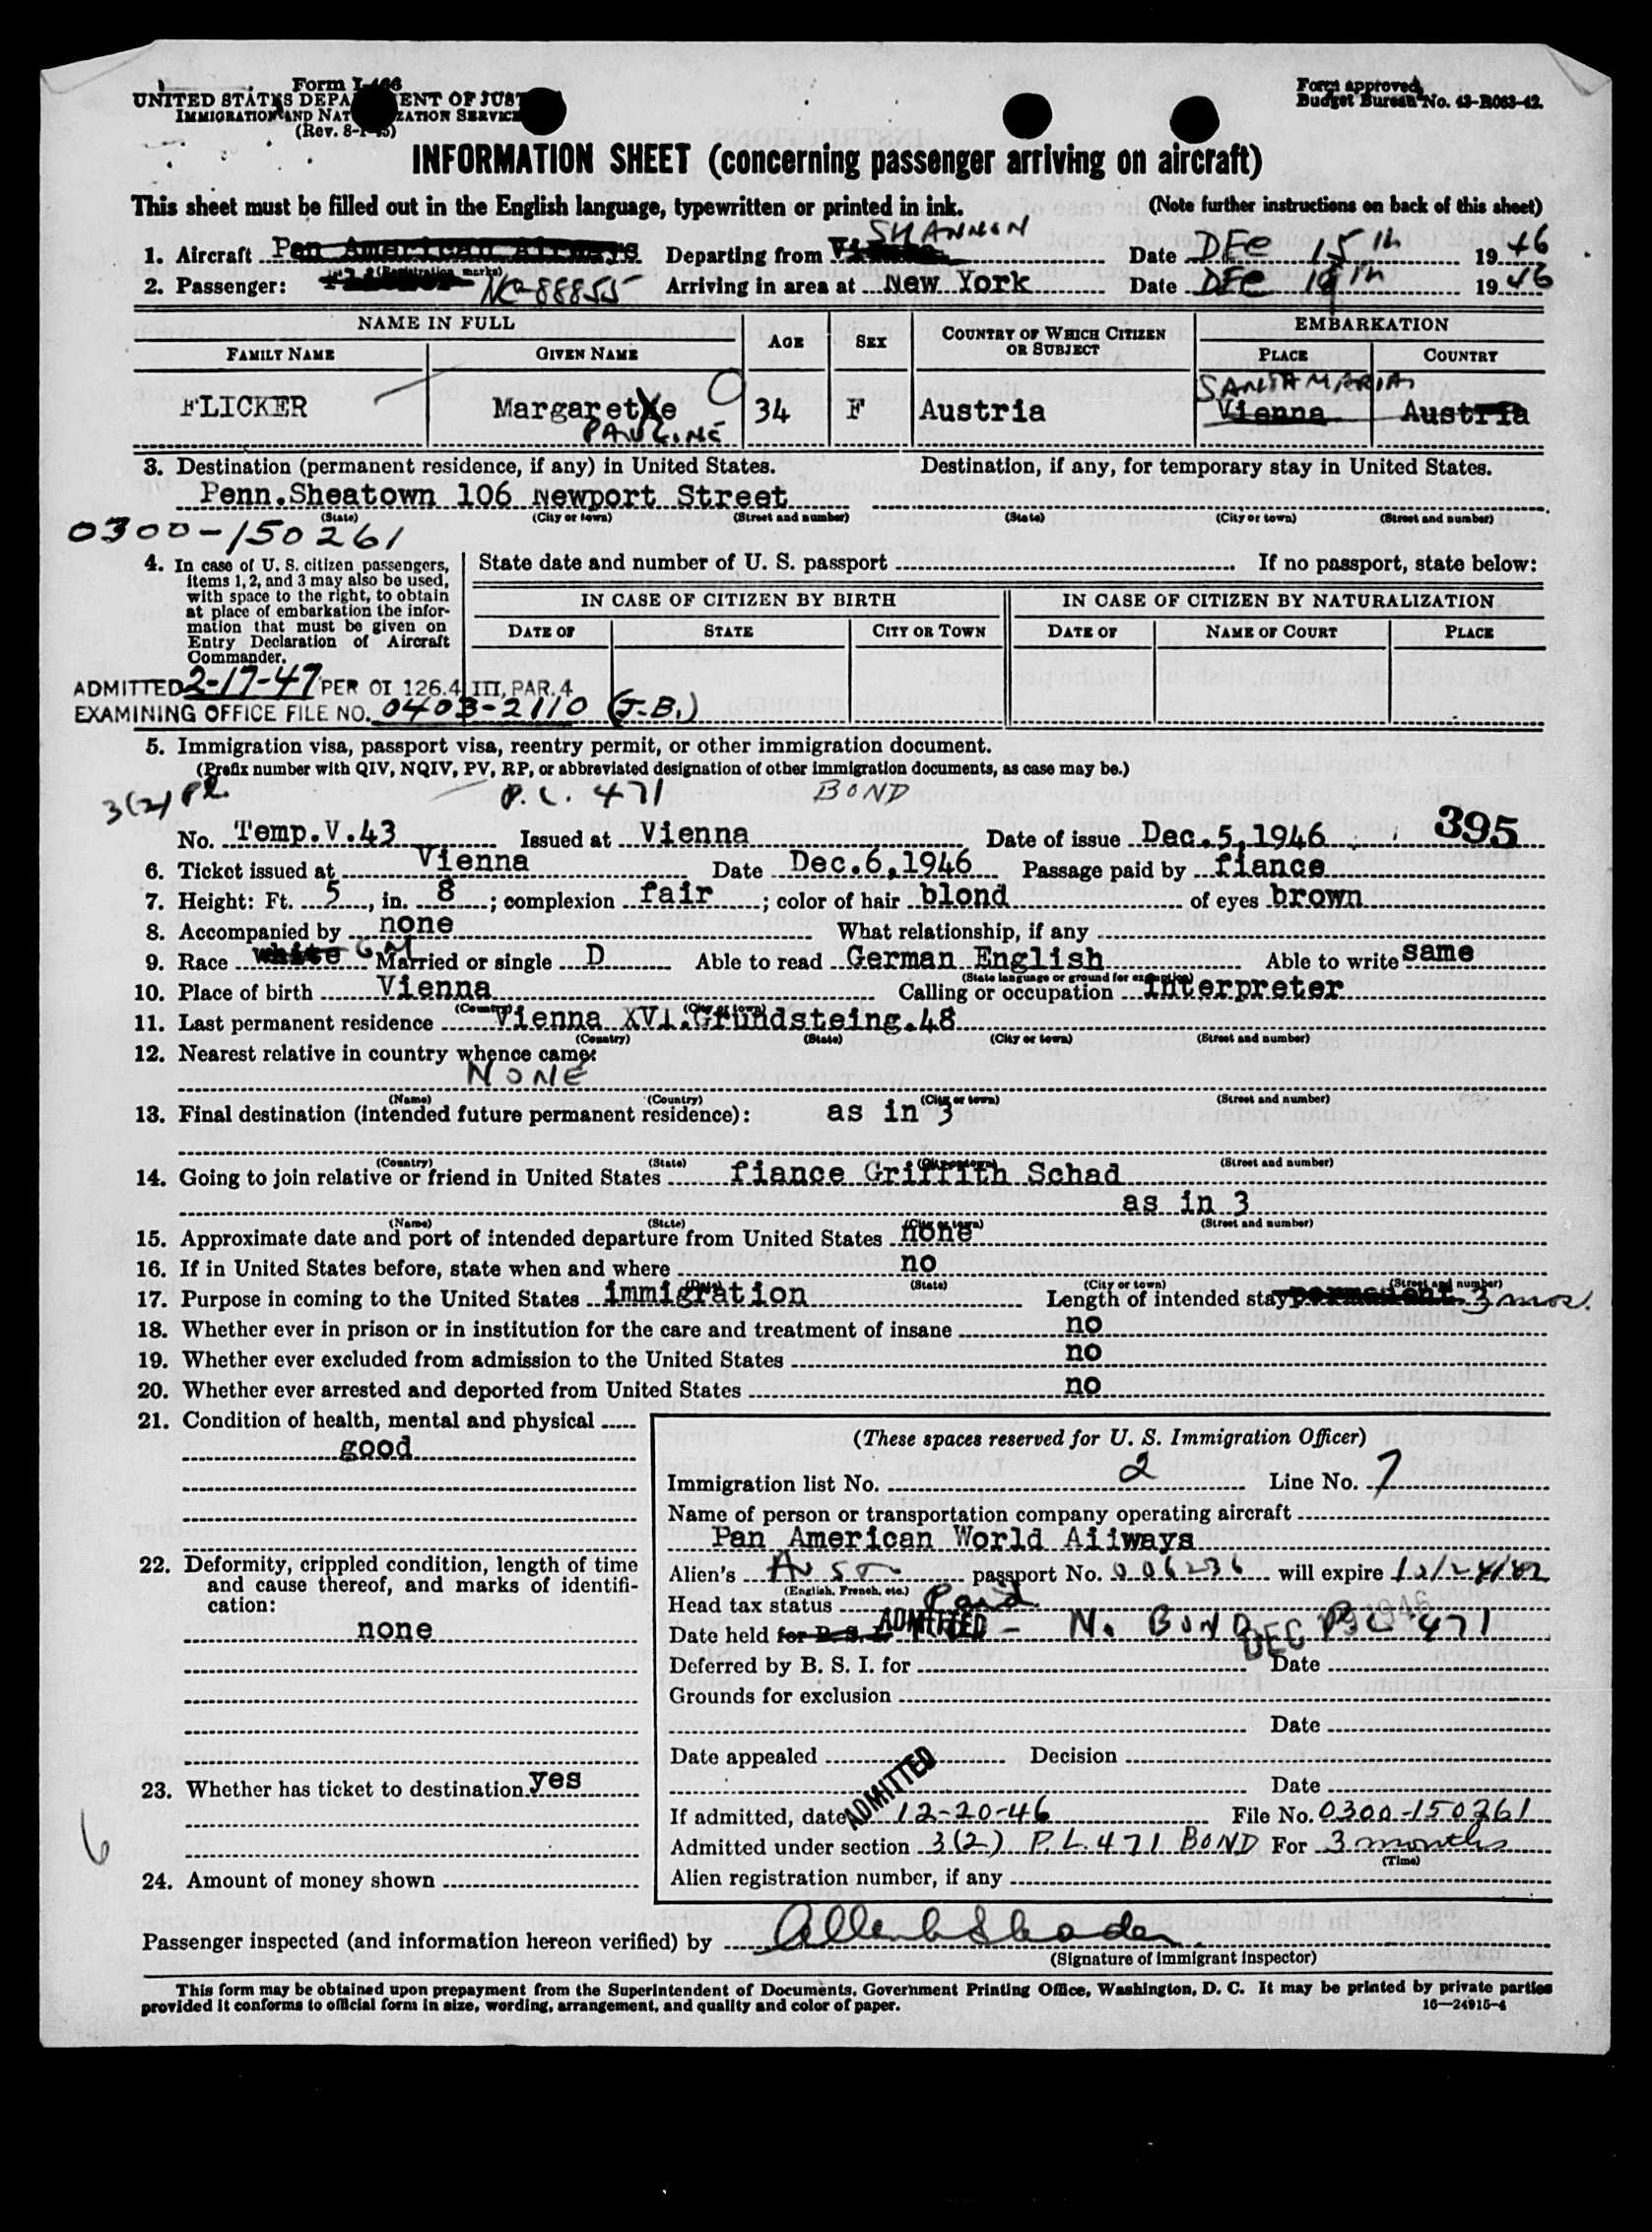 Form I-466
UNITED STATES DEPARTMENT OF JUSTICE
IMMIGRATION AND NATURALIZATION SERVICE
(Rev. 8-1-45)
Form approved.
Budget Bureau No. 43-R063-42.
INFORMATION SHEET (concerning passenger arriving on aircraft)
This sheet must be filled out in the English language, typewritten or printed in ink. (Note further instructions on back of this sheet)
SHANNON
1. Aircraft Pan American Airways Departing from Vienna Date DEC 15th 1946
(Registration marks)
2. Passenger: NC-88855 Arriving in area at New York Date DEC 19th 1946
NAME IN FULL AGE SEX COUNTRY OF WHICH CITIZEN OR SUBJECT EMBARKATION
FAMILY NAME GIVEN NAME PLACE COUNTRY
SANTA MARIA
FLICKER Margarethe 34 F Austria Vienna Austria
PAULINE
3. Destination (permanent residence, if any) in United States. Destination, if any, for temporary stay in United States.
Penn. Sheatown 106 Newport Street
(State) (City or town) (Street and number) (State) (City or town) (Street and number)
0300-150261
4. In case of U. S. citizen passengers, items 1, 2, and 3 may also be used, with space to the right, to obtain at place of embarkation the information that must be given on Entry Declaration of Aircraft Commander.
State date and number of U. S. passport If no passport, state below:
IN CASE OF CITIZEN BY BIRTH IN CASE OF CITIZEN BY NATURALIZATION
DATE OF STATE CITY OR TOWN DATE OF NAME OF COURT PLACE
ADMITTED 2-17-47 PER OI 126.4 III, PAR. 4
EXAMINING OFFICE FILE NO. 0403-2110 (J.B.)
5. Immigration visa, passport visa, reentry permit, or other immigration document.
(Prefix number with QIV, NQIV, PV, RP, or abbreviated designation of other immigration documents, as case may be.)
3(2) PL P.L. 471 BOND
395
No. Temp.V.43 Issued at Vienna Date of issue Dec.5,1946
6. Ticket issued at Vienna Date Dec.6,1946 Passage paid by fiance
7. Height: Ft. 5, in. 8; complexion fair; color of hair blond of eyes brown
8. Accompanied by none What relationship, if any
9. Race white GM Married or single D Able to read German English Able to write same
(State language or ground for exemption)
10. Place of birth Vienna Calling or occupation Interpreter
(Country) (City or town)
11. Last permanent residence Vienna XVI.Grundsteing.48
(Country) (State) (City or town) (Street and number)
12. Nearest relative in country whence came:
NONE
(Name) (Country) (City or town) (Street and number)
13. Final destination (intended future permanent residence): as in 3
(Country) (State) (City or town) (Street and number)
14. Going to join relative or friend in United States fiance Griffith Schad
as in 3
(Name) (State) (City or town) (Street and number)
15. Approximate date and port of intended departure from United States none
16. If in United States before, state when and where no
(Date) (State) (City or town) (Street and number)
17. Purpose in coming to the United States immigration Length of intended stay permanent 3 mos.
18. Whether ever in prison or in institution for the care and treatment of insane no
19. Whether ever excluded from admission to the United States no
20. Whether ever arrested and deported from United States no
21. Condition of health, mental and physical
good
22. Deformity, crippled condition, length of time and cause thereof, and marks of identification:
none
23. Whether has ticket to destination yes
6
24. Amount of money shown
(These spaces reserved for U. S. Immigration Officer)
Immigration list No. 2 Line No. 7
Name of person or transportation company operating aircraft
Pan American World Aiiways
Alien's Aust passport No. 006236 will expire
(English, French, etc.)
Head tax status Paid
Date held for B. S. I. ADMITTED - N. BOND PL 471
DEC 19 1946
Deferred by B. S. I. for Date
Grounds for exclusion
Date
Date appealed Decision
Date
ADMITTED
If admitted, date 12-20-46 File No. 0300-150261
Admitted under section 3(2) P.L. 471 BOND For 3 months
(Time)
Alien registration number, if any
Passenger inspected (and information hereon verified) by
(Signature of immigrant inspector)
This form may be obtained upon prepayment from the Superintendent of Documents, Government Printing Office, Washington, D. C. It may be printed by private parties
provided it conforms to official form in size, wording, arrangement, and quality and color of paper. 16—24915-4